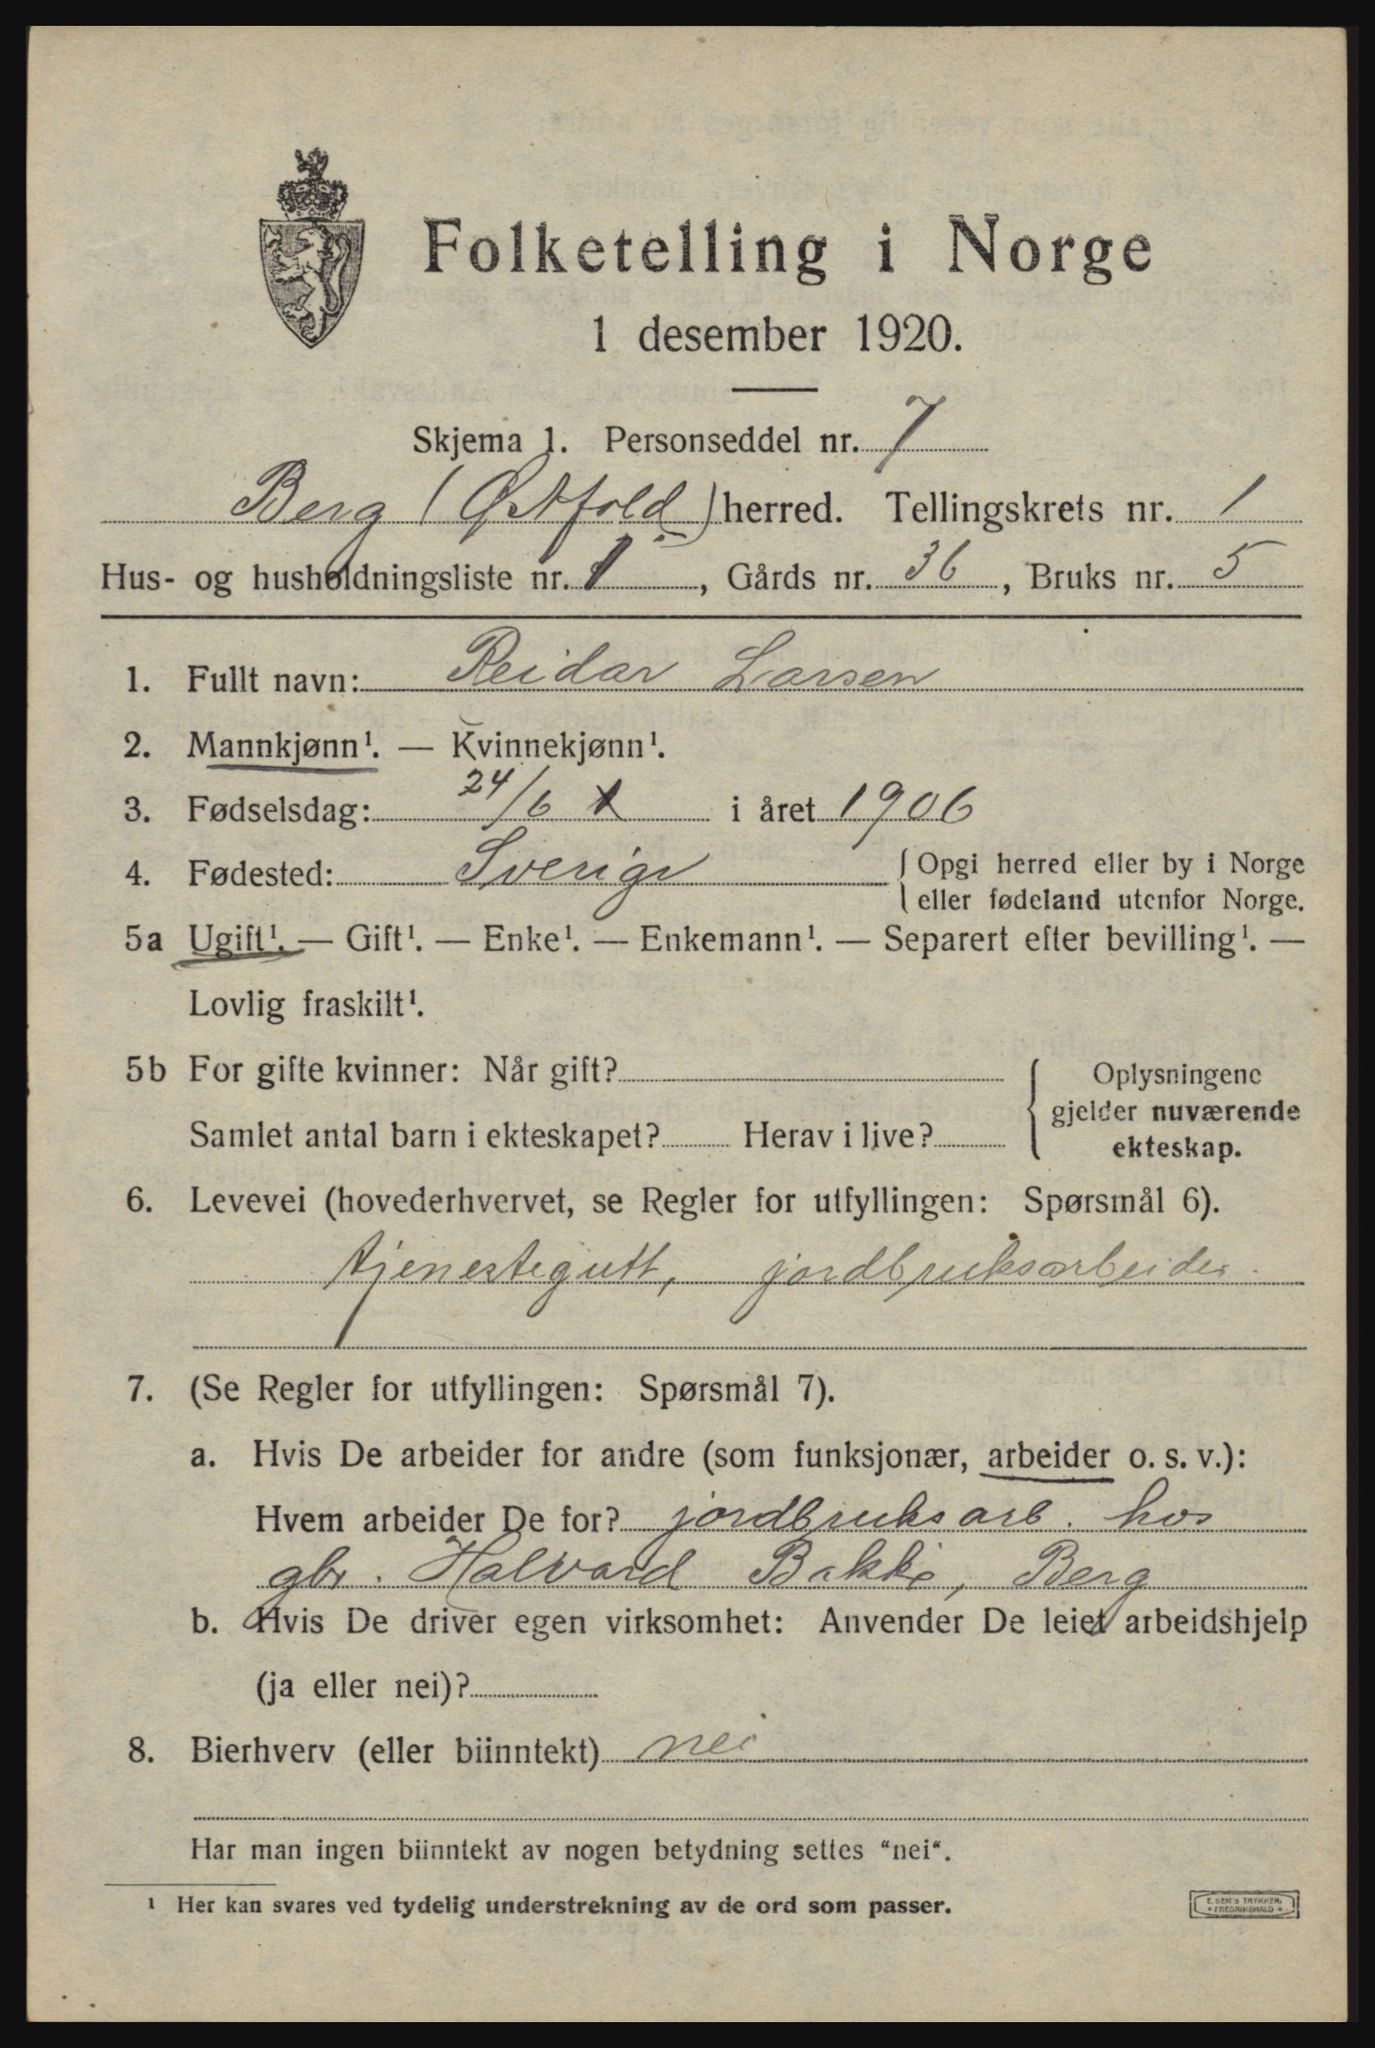 Folketelling i Norge
1 desember 1920.
Skjema 1. Personseddel nr. 7
Berg (Østfold) herred. Tellingskrets nr. 1
Hus- og husholdningsliste nr. 1, Gårds nr. 36, Bruks nr. 5
1. Fullt navn: Reidar Larsen
2. Mannkjønn¹. — Kvinnekjønn¹.
3. Fødselsdag: 24/6 i året 1906
4. Fødested: Sverige { Opgi herred eller by i Norge
eller fødeland utenfor Norge.
5a Ugift¹. — Gift¹. — Enke¹. — Enkemann¹. — Separert efter bevilling¹. —
Lovlig fraskilt¹.
5b For gifte kvinner: Når gift? { Oplysningene
gjelder nuværende
Samlet antal barn i ekteskapet? Herav i live? ekteskap.
6. Levevei (hovederhvervet, se Regler for utfyllingen: Spørsmål 6).
tjenestegutt, jordbruksarbeider
7. (Se Regler for utfyllingen: Spørsmål 7).
a. Hvis De arbeider for andre (som funksjonær, arbeider o. s. v.):
Hvem arbeider De for? jordbruksarb. hos
gbr. Halvard Bakke, Berg
b. Hvis De driver egen virksomhet: Anvender De leiet arbeidshjelp
(ja eller nei)?
8. Bierhverv (eller biinntekt) nei
Har man ingen biinntekt av nogen betydning settes "nei".
¹ Her kan svares ved tydelig understrekning av de ord som passer.
E. SEM'S TRYKKERI
* FREDRIKSHALD *